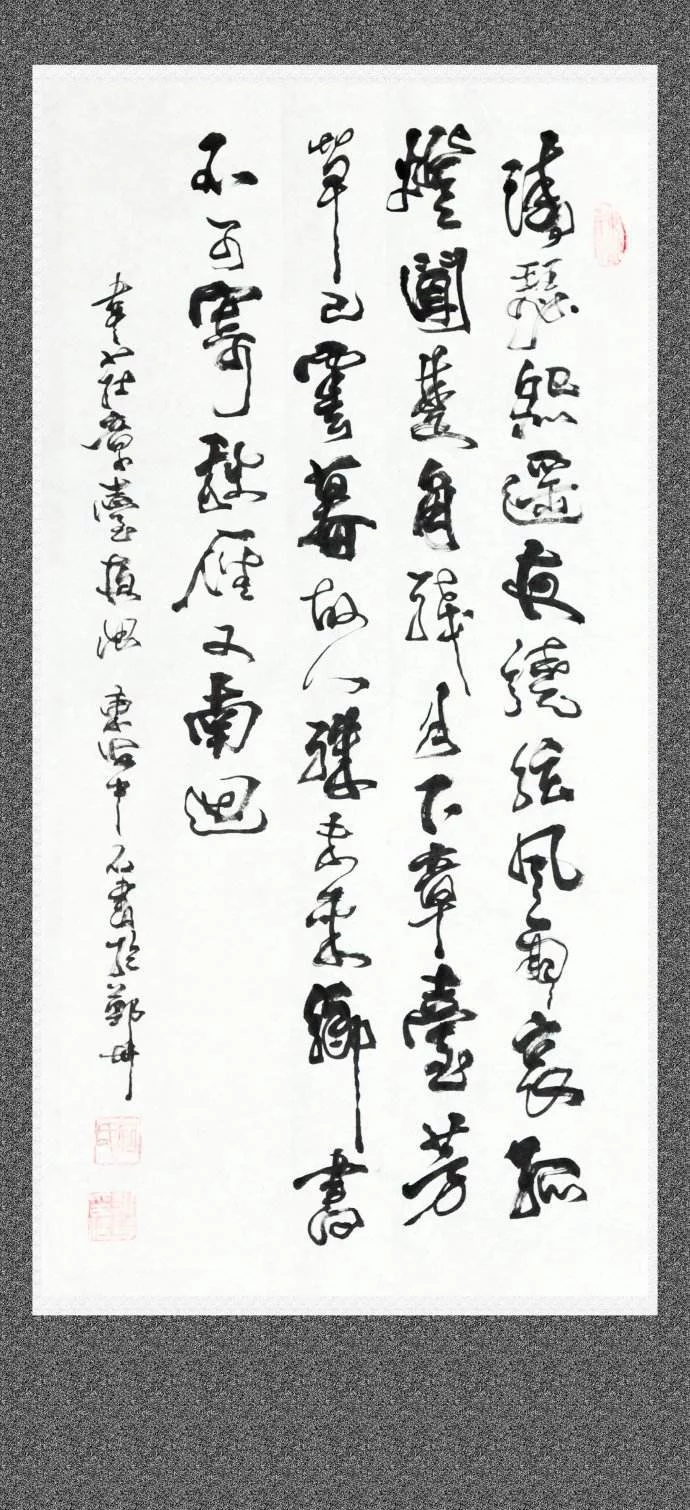 清瑟怨遥夜繞弦風雨哀孤
燈聞楚角殘月下章臺芳
草已雲暮故人殊未來鄉書
不可寄秋雁又南迴
韋莊章臺夜思 東 中石書於鄭州